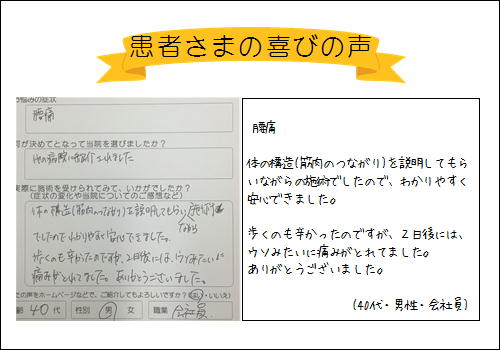 患者さまの喜びの声
お悩みの症状
腰痛
何が決めてとなって当院を選びましたか？
他の病院に紹介されました
実際に施術を受けられてみて、いかがでしたか？
(症状の変化や当院についてのご感想など)
体の構造(筋肉のつながり)を説明してもらい
ながら
施術
でしたのでわかりやすく安心できました。
歩くのも辛かったのですが、2日後には、ウソみたいに
痛みがとれてました。ありがとうございました。
たの声をホームページなどで、ご紹介してもよろしいですか？(はい・いいえ)
齢 40代 性別 男 女 職業 会社員
腰痛
体の構造(筋肉のつながり)を説明してもら
いながらの施術でしたので、わかりやすく
安心できました。
歩くのも辛かったのですが、２日後には、
ウソみたいに痛みがとれてました。
ありがとうございました。
(40代・男性・会社員)